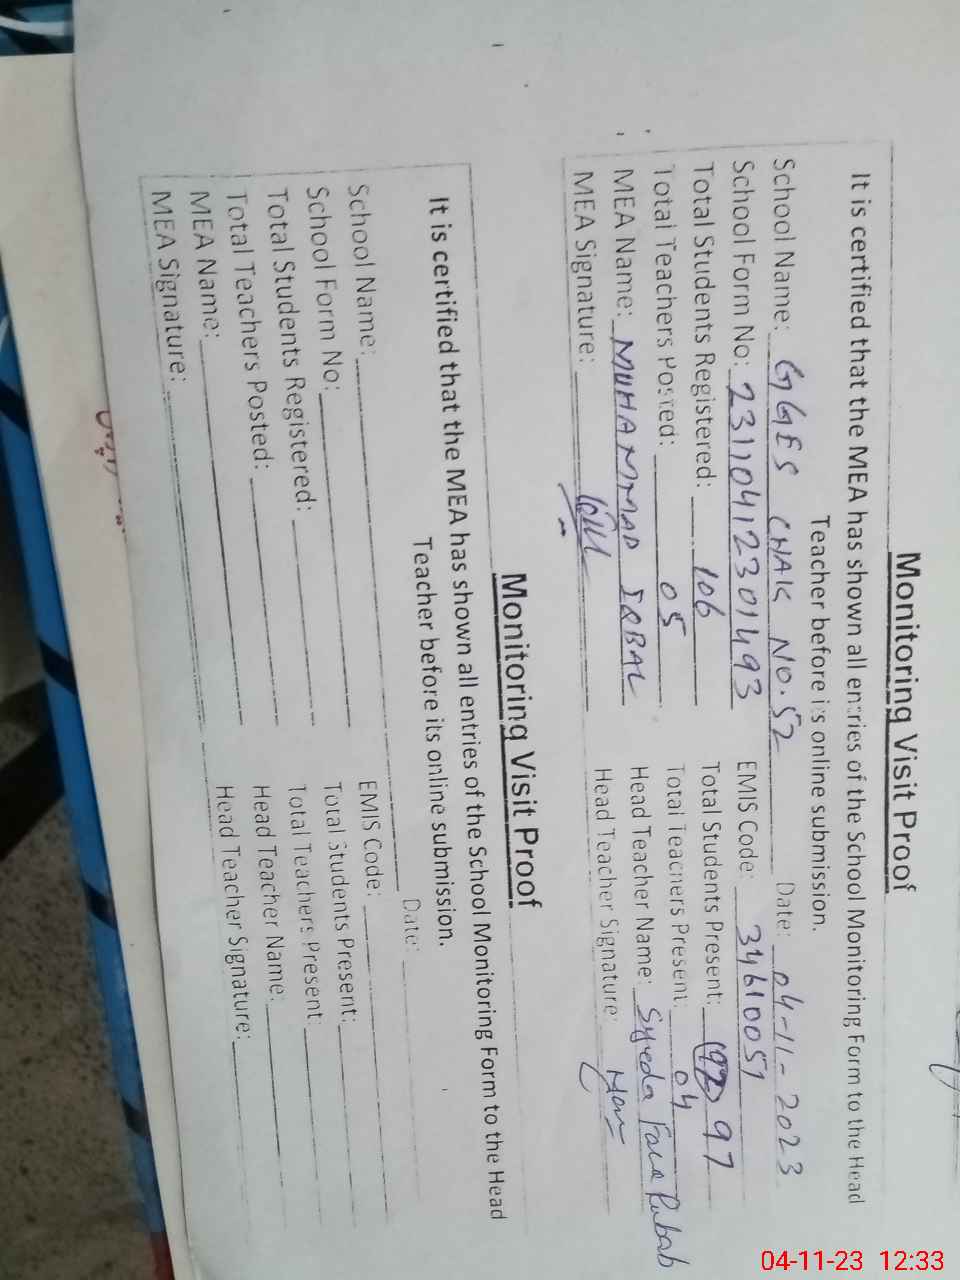 Monitoring Visit Proof
It is certified that the MEA has shown all entries of the School Monitoring Form to the Head
Teacher before its online submission.
School Name: GGES CHAK NO.52 Date: 04-11-2023
School Form No: 23110412301493 EMIS Code: 34610051
Total Students Registered: 106 Total Students Present: 97
Total Teachers Posted: 05 Total Teachers Present: 04
MEA Name: MUHAMMAD IQBAL Head Teacher Name: Syeda Rubab
MEA Signature: Head Teacher Signature:
Monitoring Visit Proof
It is certified that the MEA has shown all entries of the School Monitoring Form to the Head
Teacher before its online submission.
School Name: Date:
School Form No: EMIS Code:
Total Students Registered: Total Students Present:
Total Teachers Posted: Total Teachers Present:
MEA Name: Head Teacher Name:
MEA Signature: Head Teacher Signature:
04-11-23 12:33